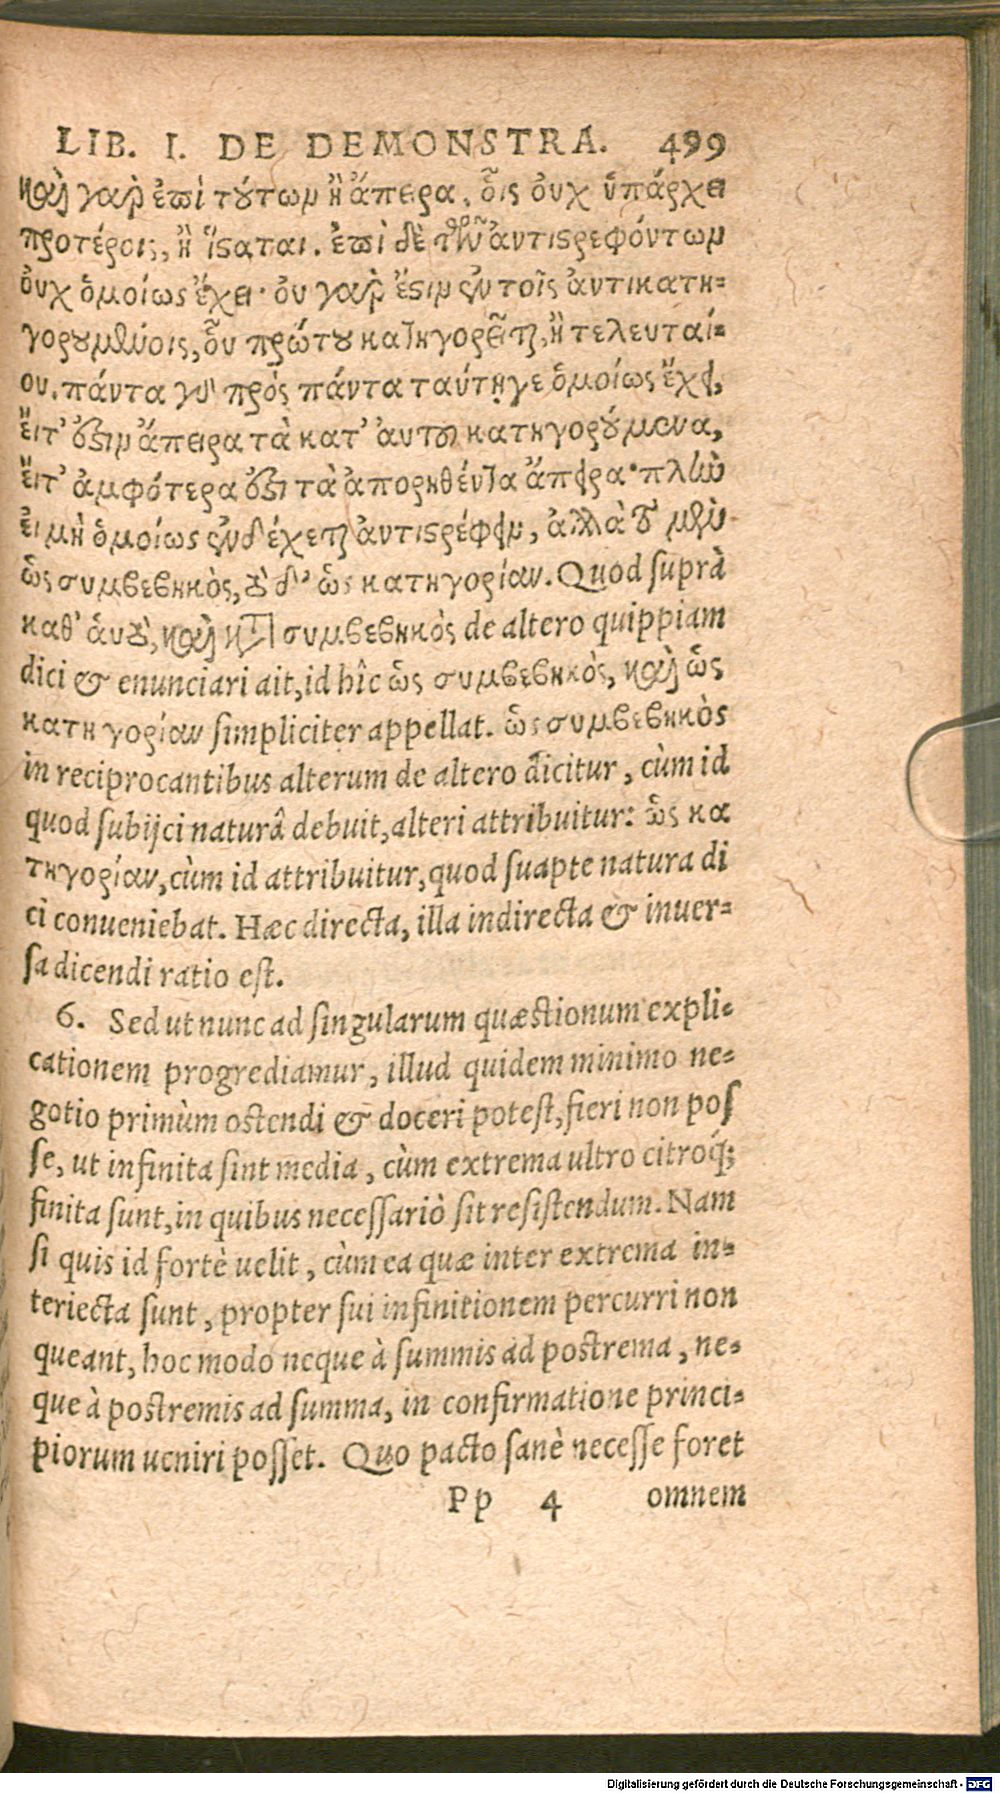 LIB. I. DE DEMONSTRA. 499
καὶ γὰρ ἐπὶ τούτων ἢ ἄπειρα, οἷς οὐχ ὑπάρχει
προτέροις, ἢ ἵσαται. ἐπὶ δὲ τῶν ἀντιςρεφόντων
οὐχ ὁμοίως ἔχει· οὐ γὰρ ἔςιν ἐν τοῖς ἀντικατη-
γορουμένοις, οὗ πρώτου κατηγορεῖται, ἢ τελευταί-
ου, πάντα γὰρ πρὸς πάντα ταύτῃ γε ὁμοίως ἔχει,
εἴτ' ἐςὶν ἄπειρα τὰ κατ' αὐτοῦ κατηγορούμενα,
εἴτ' ἀμφότερά ἐςι τὰ ἀπορηθέντα ἄπειρα· πλὴν
εἰ μὴ ὁμοίως ἐνδέχεται ἀντιςρέφειν, ἀλλὰ τὸ μὲν
ὡς συμβεβηκὸς, τὸ δ' ὡς κατηγορίαν. Quod suprà
καθ' αὑτὸ, καὶ κατὰ συμβεβηκὸς de altero quippiam
dici & enunciari ait, id hîc ὡς συμβεβηκὸς, καὶ ὡς
κατηγορίαν simpliciter appellat. ὡς συμβεβηκὸς
in reciprocantibus alterum de altero dicitur, cùm id
quod subijci naturâ debuit, alteri attribuitur: ὡς κα
τηγορίαν, cùm id attribuitur, quod suapte natura di
ci conueniebat. Hæc directa, illa indirecta & inuer-
sa dicendi ratio est.
6. Sed ut nunc ad singularum quæstionum expli-
cationem progrediamur, illud quidem minimo ne-
gotio primùm ostendi & doceri potest, fieri non pos
se, ut infinita sint media, cùm extrema ultro citroq́;
finita sunt, in quibus necessariò sit resistendum. Nam
si quis id fortè uelit, cùm ea quæ inter extrema in-
teriecta sunt, propter sui infinitionem percurri non
queant, hoc modo neque à summis ad postrema, ne-
que à postremis ad summa, in confirmatione princi-
piorum ueniri posset. Quo pacto sanè necesse foret
Pp 4 omnem
Digitalisierung gefördert durch die Deutsche Forschungsgemeinschaft - DFG